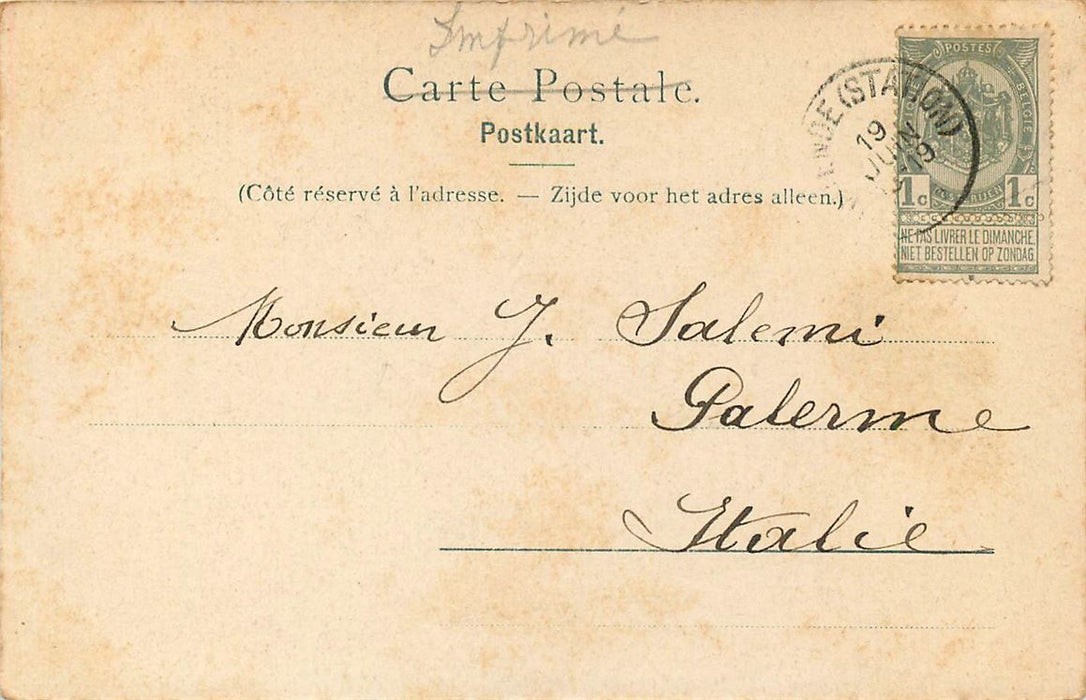 Imprimé
Carte Postale.
Postkaart.
(Côté réservé à l'adresse. — Zijde voor het adres alleen.)
(STATION)
19
JUIN
POSTES
BELGIE
1c 1c
NE PAS LIVRER LE DIMANCHE.
NIET BESTELLEN OP ZONDAG.
Monsieur J. Salemi
Palerme
Italie